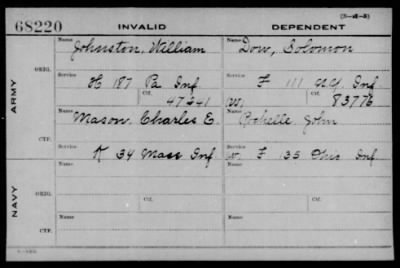 (3-45-3)
68220 INVALID DEPENDENT
Name Johnston, William Name Dow, Solomon
ARMY
ORIG.
Service H 187 Pa Inf Service F 111 N.Y. Inf
Ctf. 47241 (W) Ctf. 83776
Name Mason, Charles E. Name Rochelle John
CTF.
Service K 34 Mass Inf Service W. F 135 Ohio Inf
NAVY
ORIG.
Name Ctf. Name Ctf.
Service Service
CTF.
Name Name
Service Service